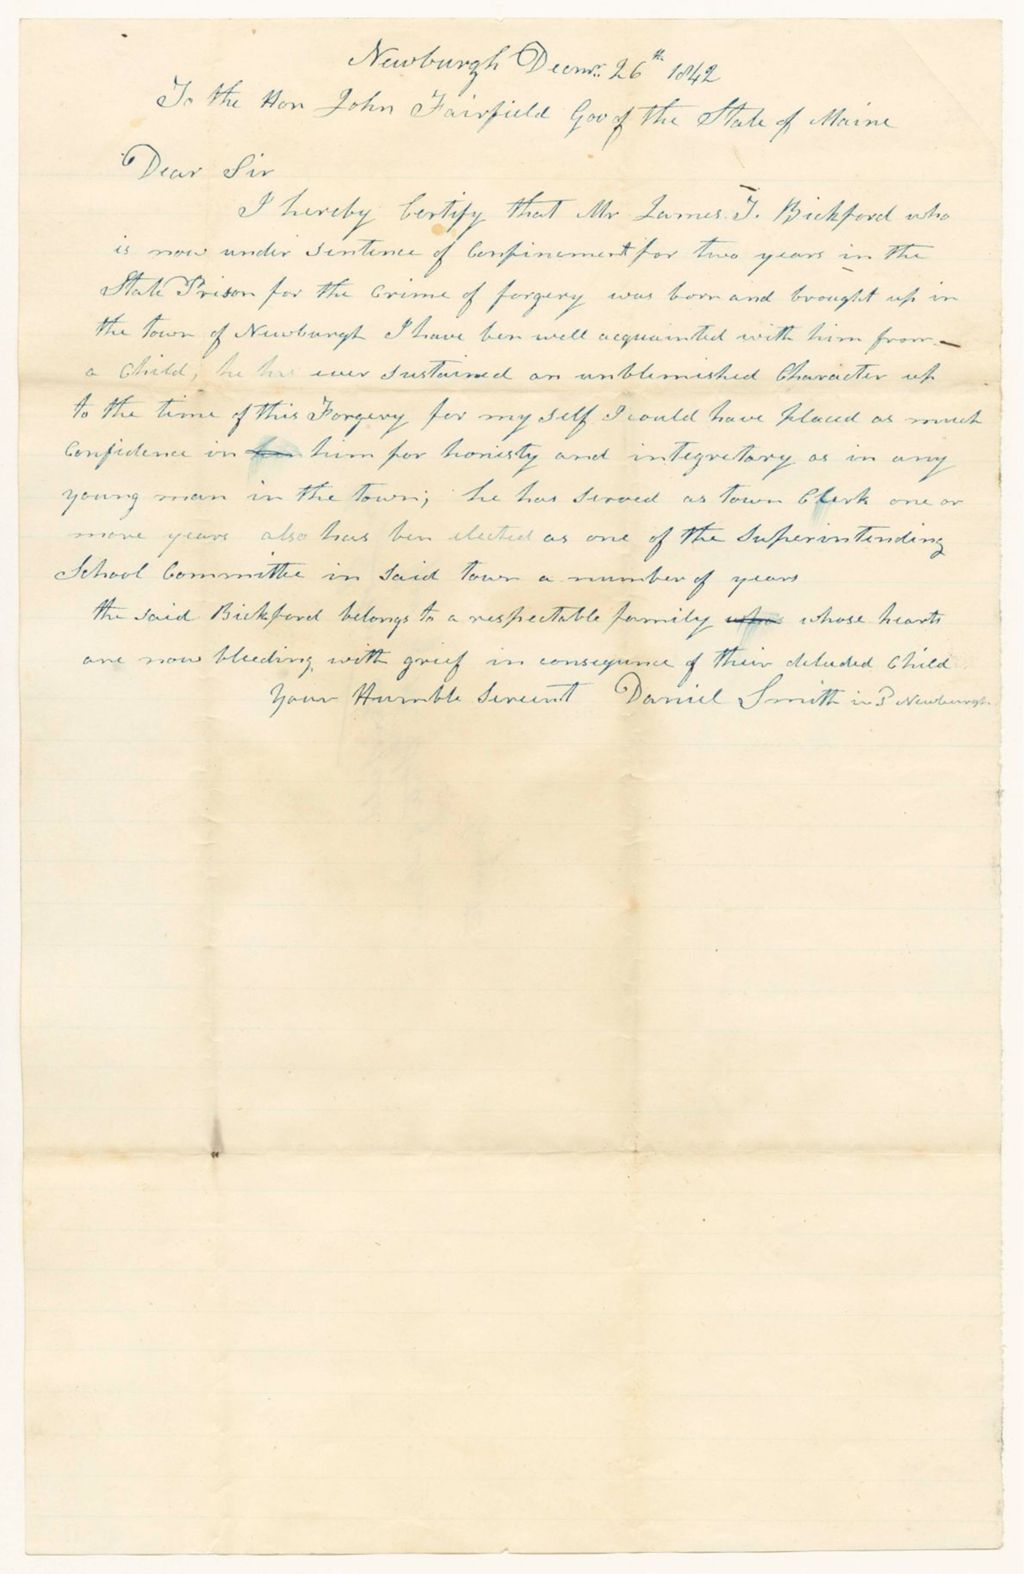 Newburgh Decmr. 26th 1842
To the Hon John Fairfield Gov of the State of Maine
Dear Sir
I hereby Certify that Mr James T. Bickford who
is now under sentence of Confinement for two years in the
State Prison for the Crime of forgery was born and brought up in
the town of Newburgh I have ben well acquainted with him from
a Child; he has ever sustained an unblemished Character up
to the time of this Forgery for my self I could have placed as much
Confidence in him for honisty and integretary as in any
young man in the town; he has served as town Clerk one or
more years also has ben elected as one of the Superintending
School Committee in said town a number of years
the said Bickford belongs to a respectable family whose hearts
are now bleeding with grief in consequnce of their deluded Child
Your Humble Servent Daniel Smith in 3 Newburgh